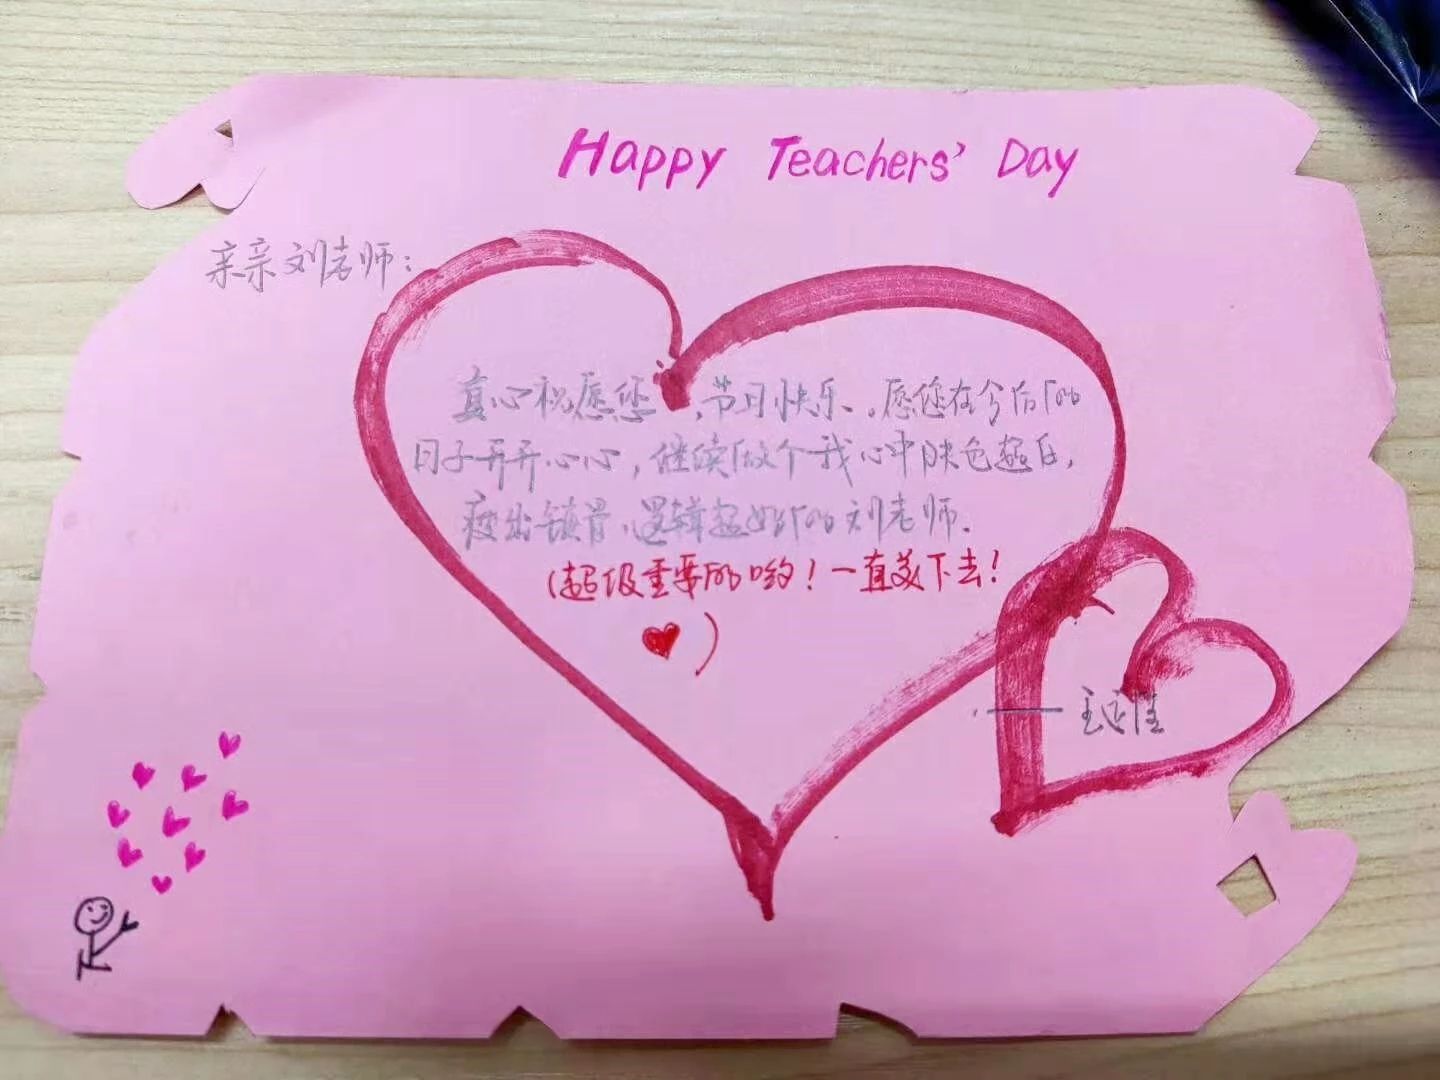 Happy Teachers' Day
亲亲刘老师：
真心祝愿您，节日快乐、愿您在今后的
日子开开心心，继续做个我心中肤色超白，
瘦出锁骨、逻辑超好的刘老师.
(超级重要的哟！一直美下去！
)
——